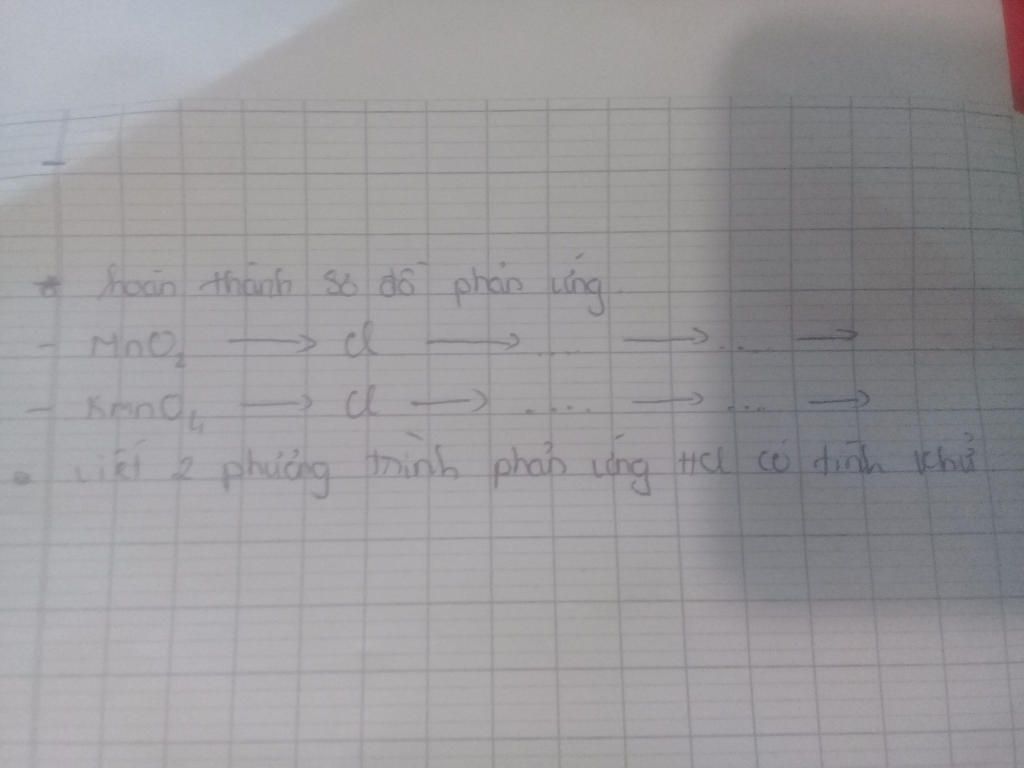 * hoàn thành sơ đồ phản ứng.
- MnO₂ → Cl → .... → ... →
- KmnO₄ → Cl → .... → ... →
• viết 2 phương trình phản ứng HCl có tính khử